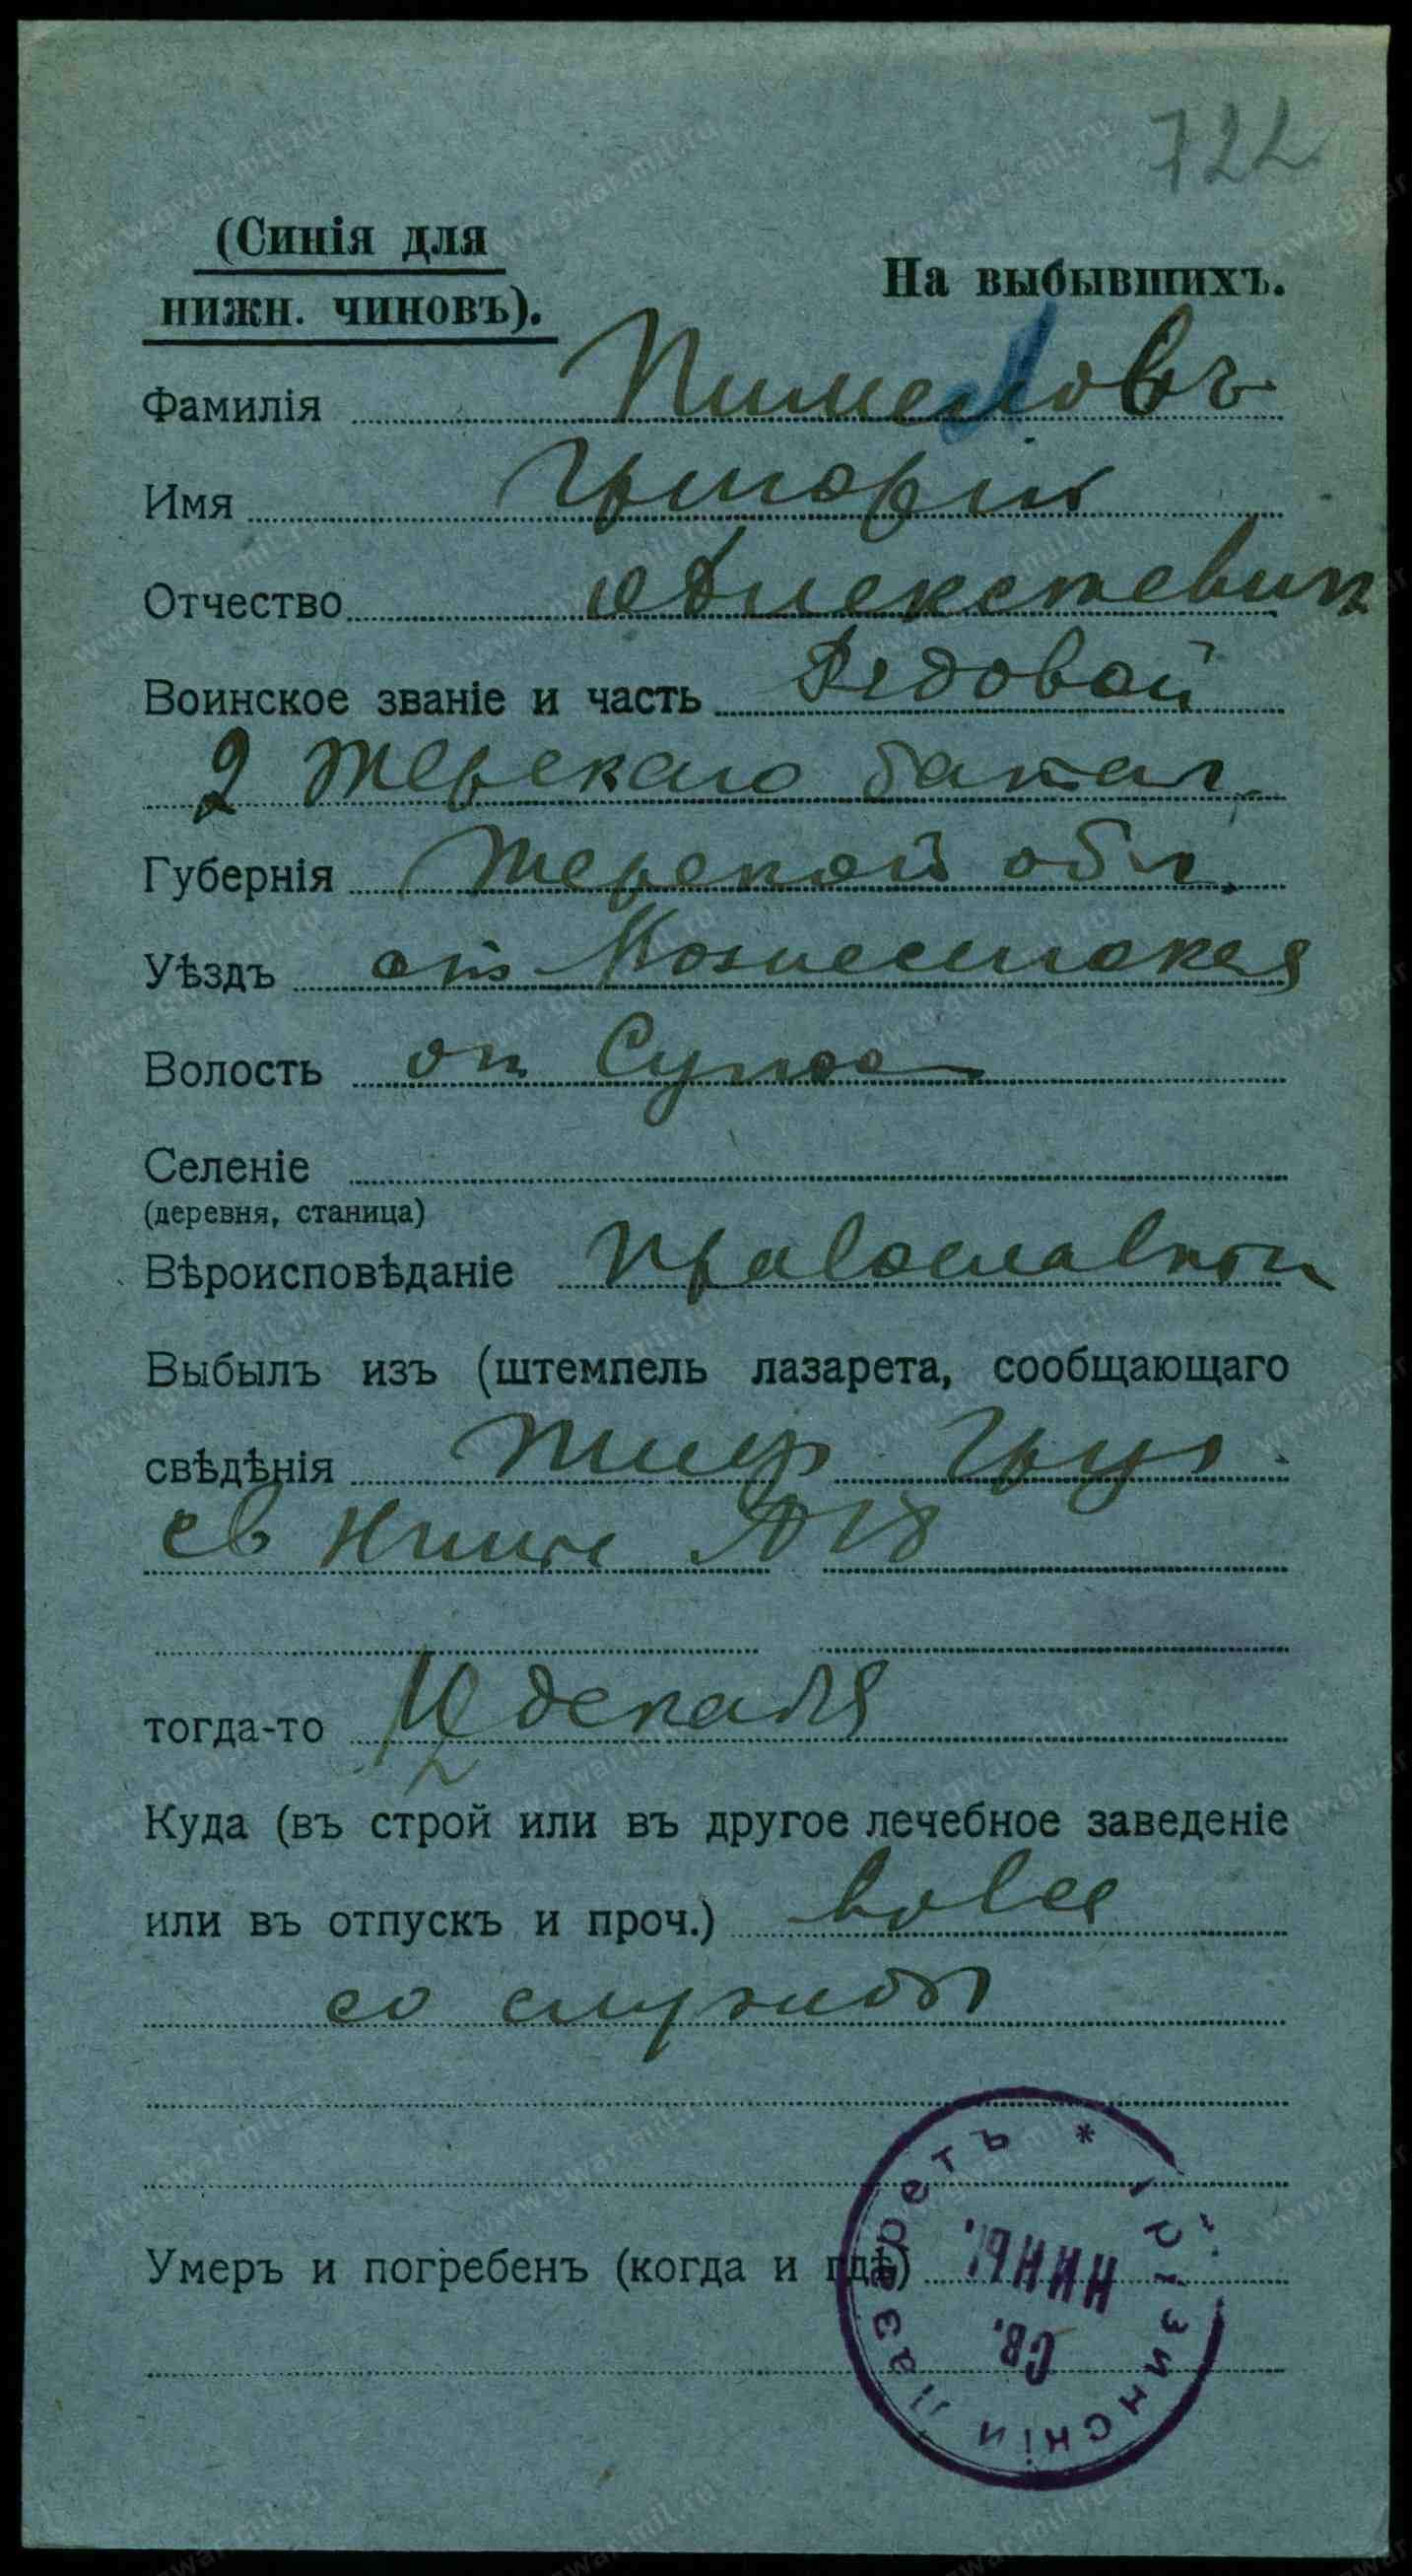 722
(Синія для
нижн. чиновъ).
На выбывшихъ.
Фамилія Пименовъ
Имя Григорій
Отчество Алексеевич
Воинское званіе и часть Рядовой
2 Терскаго батал.
Губернія Терской обл.
Уѣздъ от
Волость от
Селеніе
(деревня, станица)
Вѣроисповѣданіе Православной
Выбылъ изъ (штемпель лазарета, сообщающаго
свѣдѣнія Тиф Груз.
св Нины
тогда-то декабря
Куда (въ строй или въ другое лечебное заведеніе
или въ отпускъ и проч.) вовсе
со службы
Умеръ и погребенъ (когда и гдѣ)
Грузинскій лазаретъ *
св.
НИНЫ.